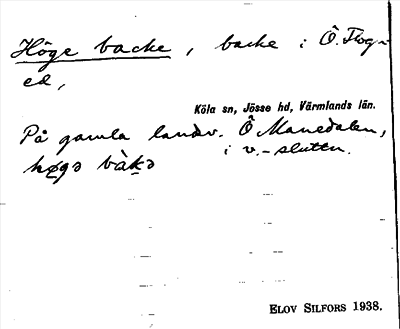 Höge backe, backe i Ö. Flog-
ed,
Köla sn, Jösse hd, Värmlands län.
På gamla landv. Ö Manedalen,
i v.-slutten.
høgə bàkə
ELOV SILFORS 1938.